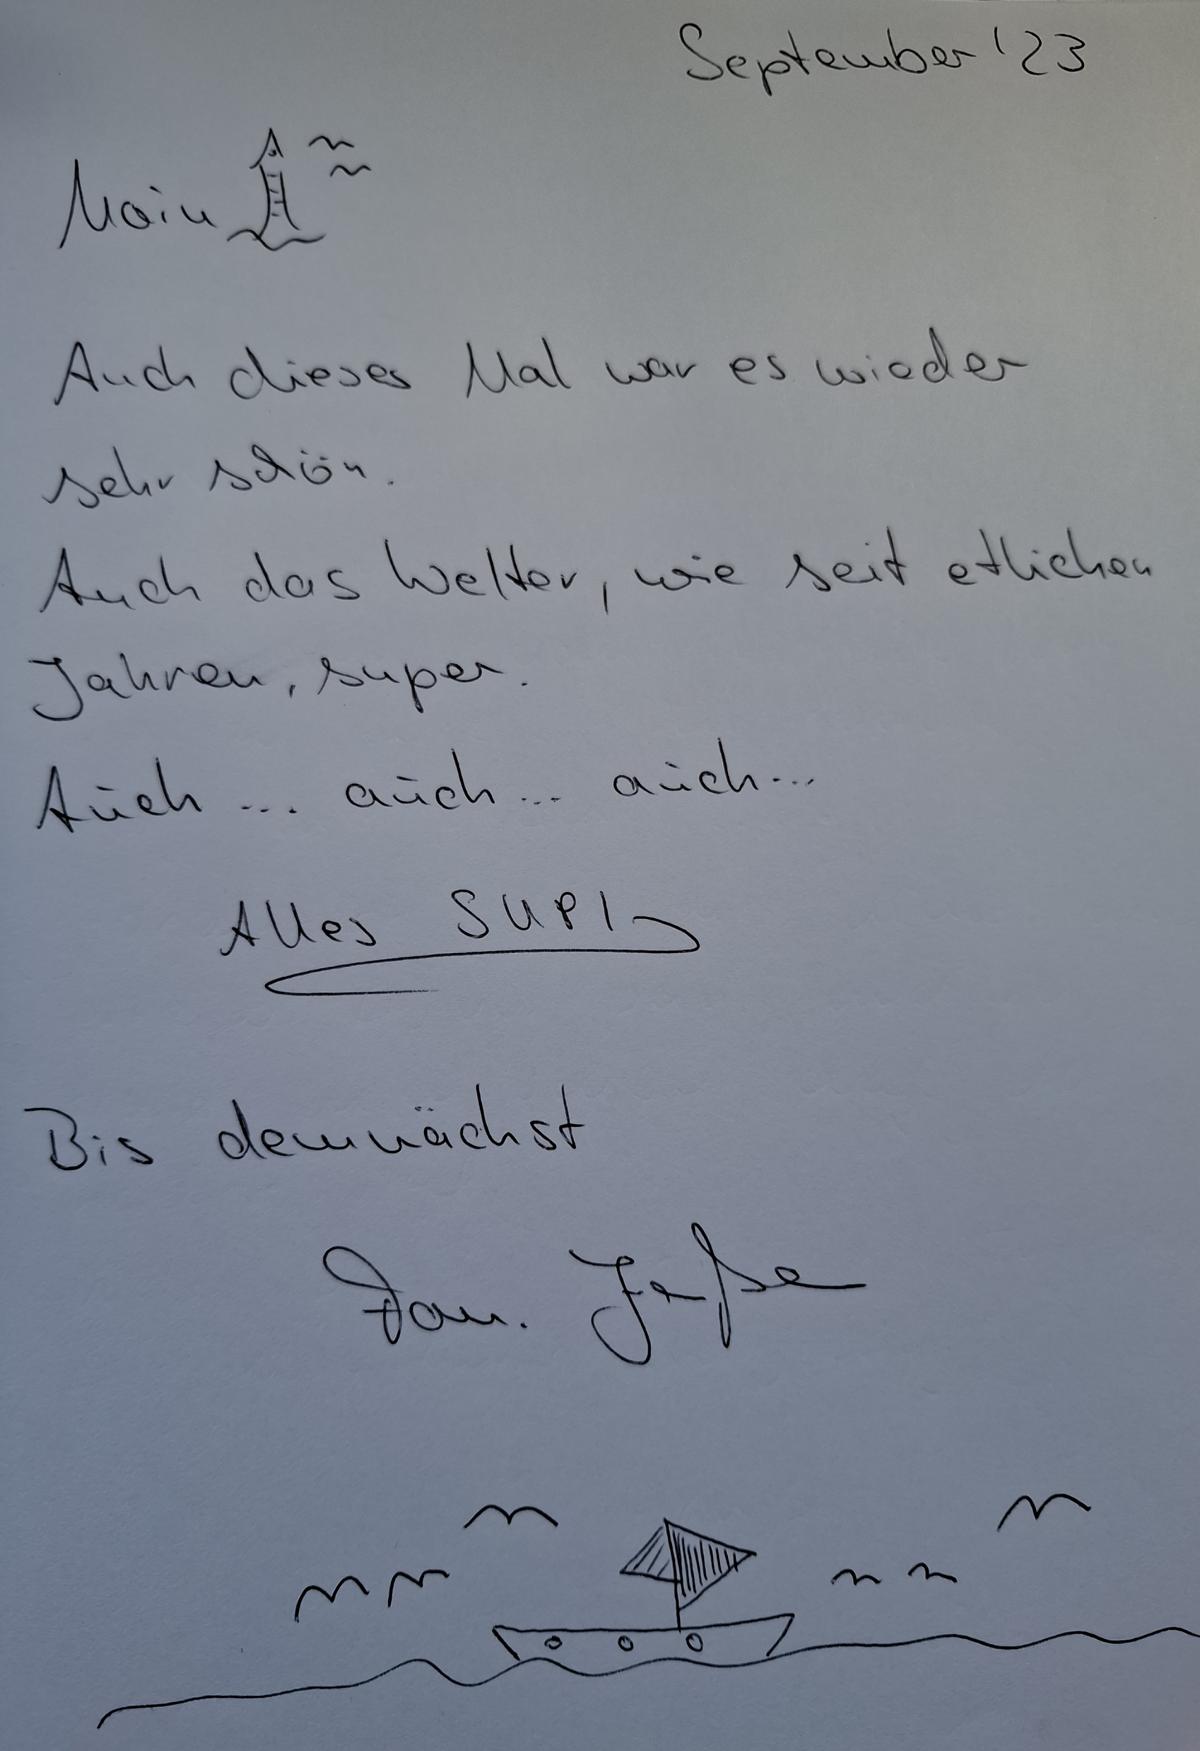 September '23
Moin
Auch dieses Mal war es wieder
sehr schön.
Auch das Wetter, wie seit etlichen
Jahren, super.
Auch ... auch ... auch ...
Alles SUPI
Bis demnächst
Fam.